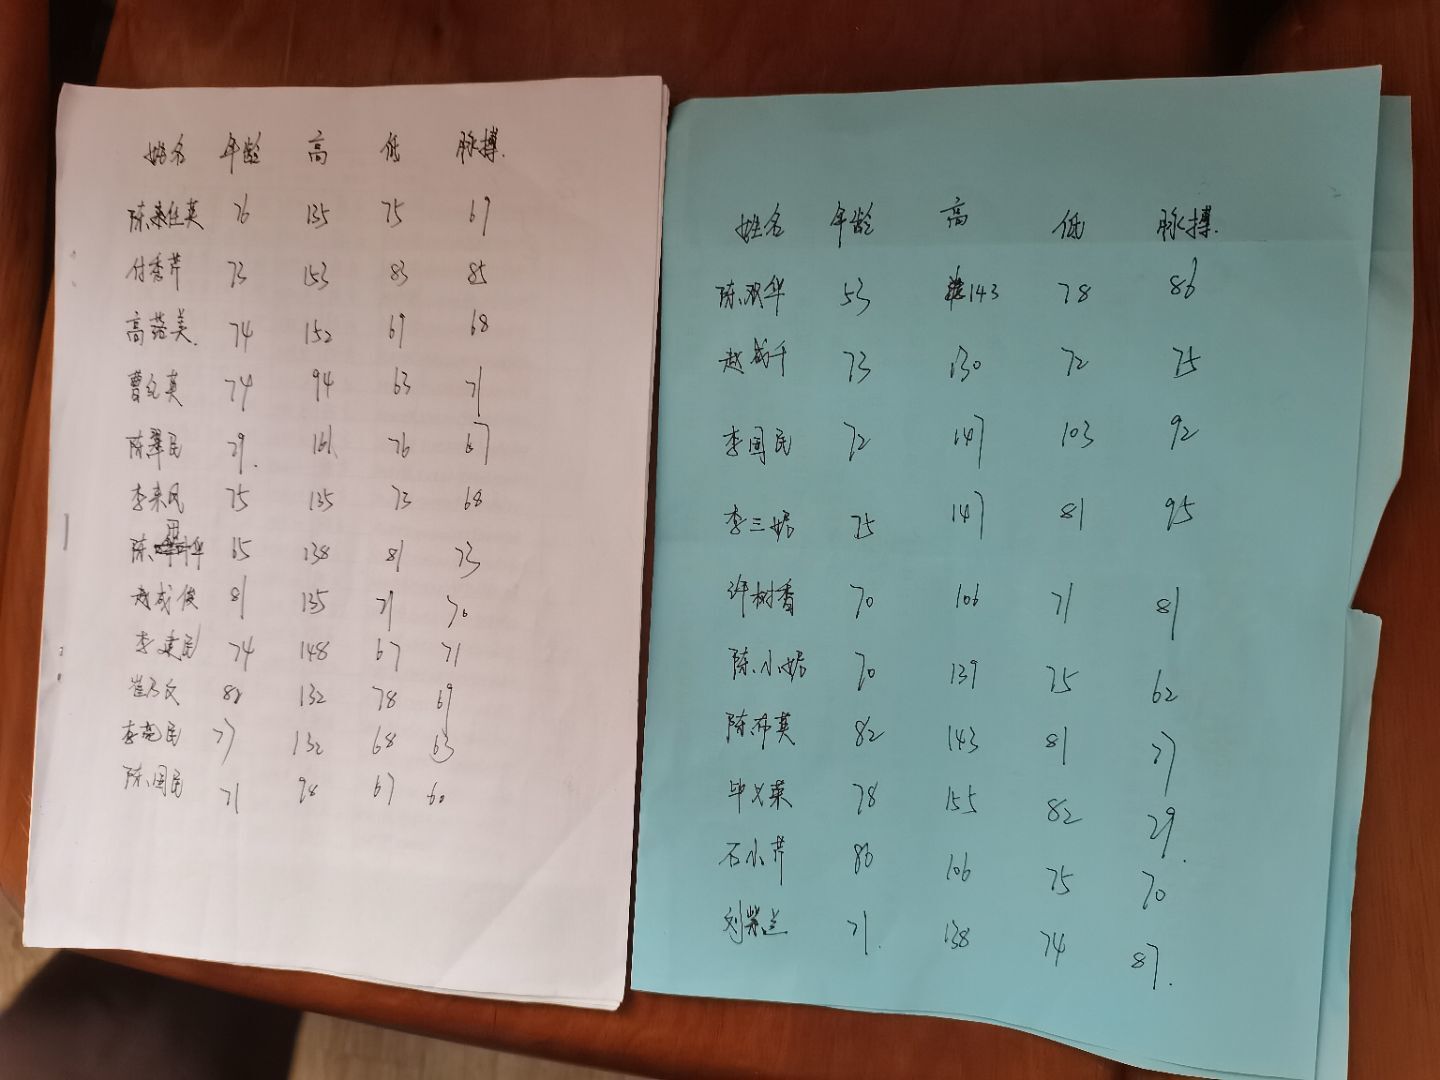 姓名 年龄 高 低 脉搏.
陈来仕英 76 135 75 69
付秀芹 73 153 83 85
高菪美. 74 152 69 68
曹纪英 74 94 63 71
陈翠民 79. 161 76 67
李来风 75 135 73 68
陈 华 65 138 81 73
赵成俊 81 135 71 70
李建民 74 148 67 71
崔乃文 132 78 69
李 民 77 132 68 63
陈国民 71 98 67 60
姓名 年龄 高 低 脉搏.
陈双华 53 143 78 86
赵成千 73 130 72 75
李国民 72 147 103 92
李三妮 75 147 81 95
许树香 70 106 71 81
陈小妮 70 139 75 62
陈布英 82 143 81 77
毕义荣 78 155 82 79.
石小芹 86 106 75 70
刘 兰 71. 138 74 87.